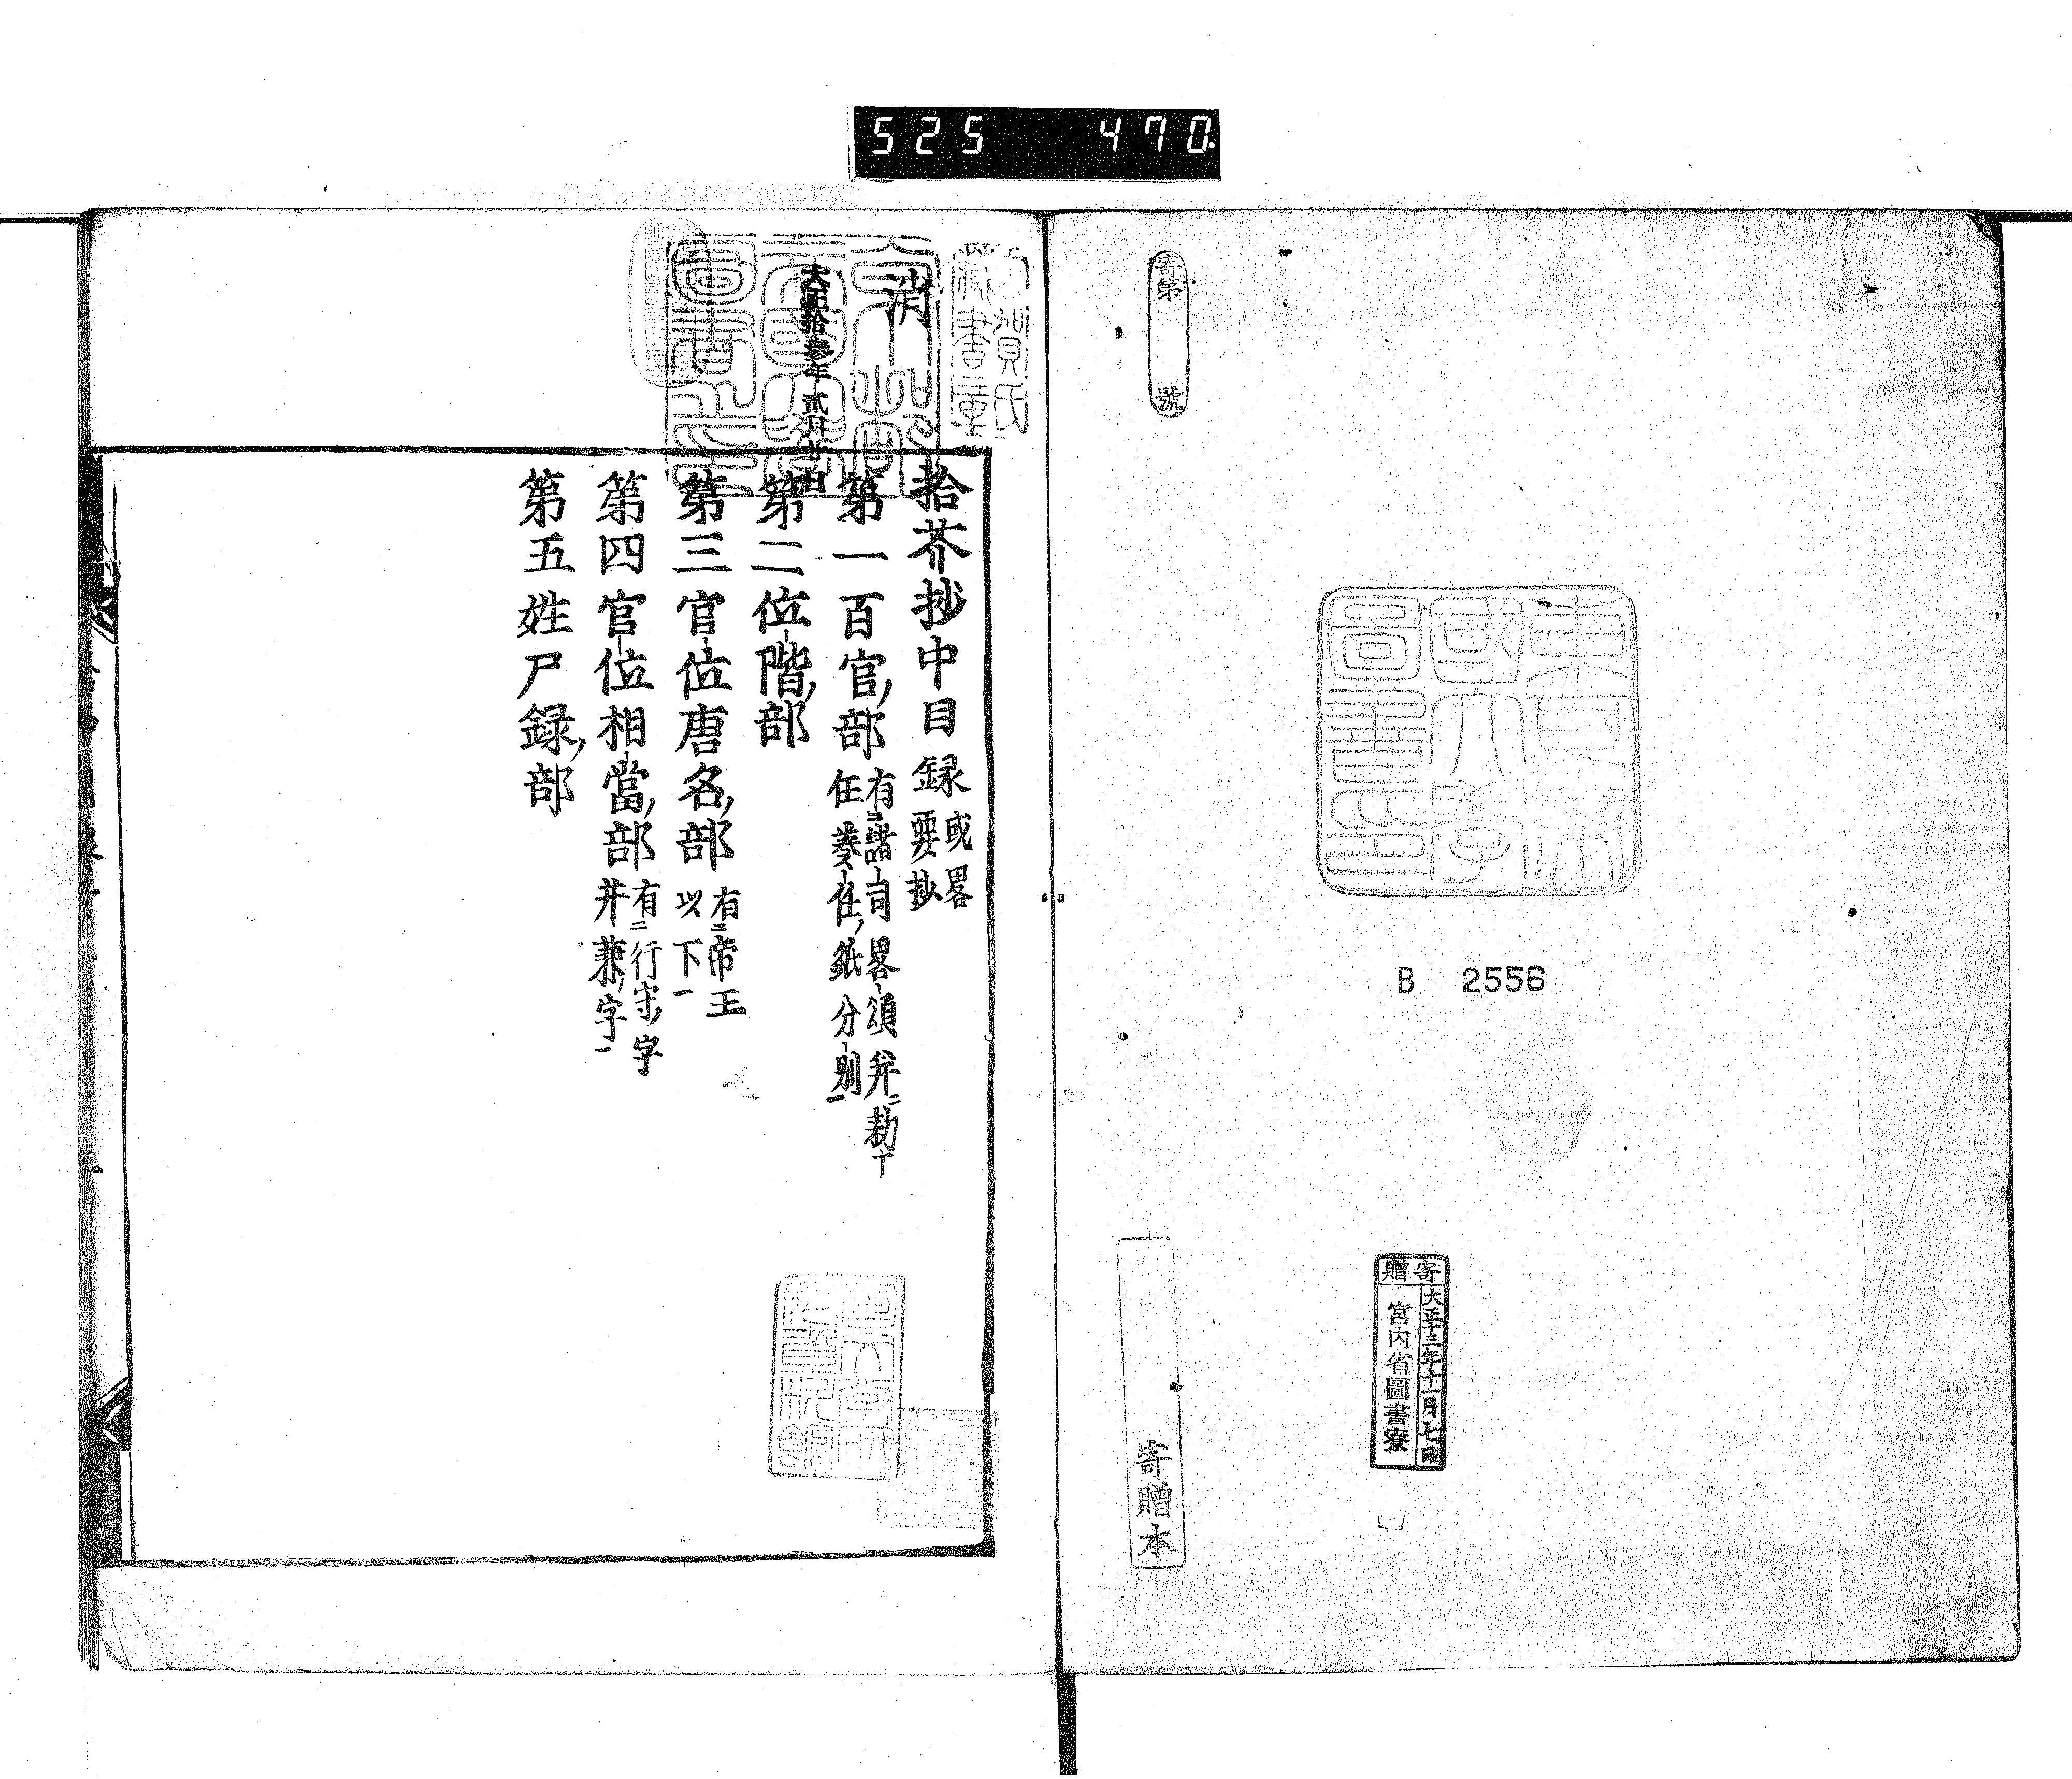 525 470
寄第 號
東京帝國大學圖書印
B 2556
寄贈
大正十三年十一月七日
宮内省圖書寮
寄贈本
賀氏
藏書章
消
大正拾參年
拾芥抄中目録 或畧要抄
第一百官部 有諸司畧頌并勅
任奏任紙分別
第二位階部
第三官位唐名部 有帝王
以下
第四官位相當部 有行守字
并兼字
第五姓尸録部